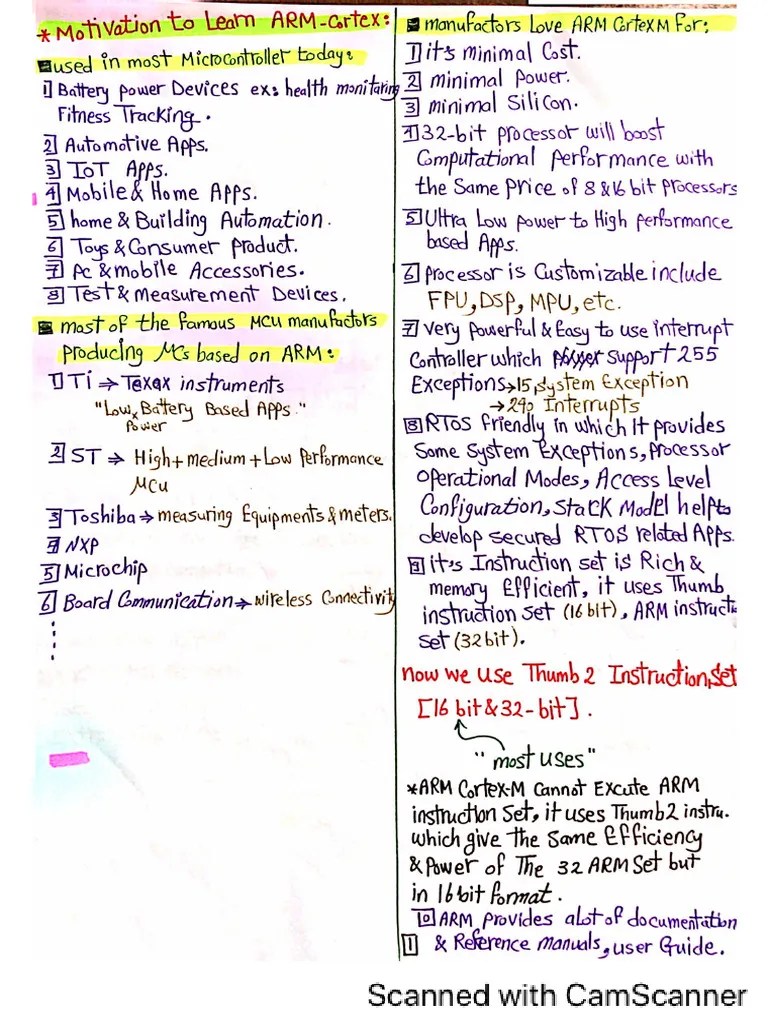 * Motivation to Learn ARM-Cortex:
used in most Microcontroller today:
1 Battery power Devices ex: health monitaring
Fitness Tracking.
2 Automotive Apps.
3 IoT Apps.
4 Mobile & Home Apps.
5 home & Building Automation.
6 Toys & Consumer product.
7 Pc & mobile Accessories.
8 Test & Measurement Devices.
most of the famous MCU manufactors
producing MCs based on ARM:
1 Ti ⇒ Texax instruments
"Low Battery Based Apps."
Power
2 ST ⇒ High + medium + Low Performance
MCU
3 Toshiba ⇒ measuring Equipments & meters.
4 NXP
5 Microchip
6 Board Communication ⇒ wireless Connectivity
manufactors Love ARM CortexM For:
1 it's minimal Cost.
2 minimal Power.
3 minimal Silicon.
4 32-bit processor will boost
Computational performance with
the Same Price of 8 & 16 bit processors
5 Ultra Low power to High performance
based Apps.
6 processor is Customizable include
FPU, DSP, MPU, etc.
7 very powerful & Easy to use interrupt
Controller which support 255
Exceptions → 15, system Exception
→ 240 Interrupts
8 RTOS friendly in which It provides
Some System Exceptions, processor
operational Modes, Access Level
Configuration, Stack Model helps
develop secured RTOS related Apps.
9 it's Instruction set is Rich &
memory Efficient, it uses Thumb
instruction set (16 bit), ARM instructi
set (32 bit).
now we use Thumb 2 Instruction Set
[16 bit & 32-bit].
"most uses"
*ARM Cortex-M Cannot Excute ARM
instruction Set, it uses Thumb2 instru.
which give the Same Efficiency
& Power of The 32 ARM Set but
in 16 bit format.
10 ARM provides alot of documentation
& Reference manuals, user Guide.
1
Scanned with CamScanner